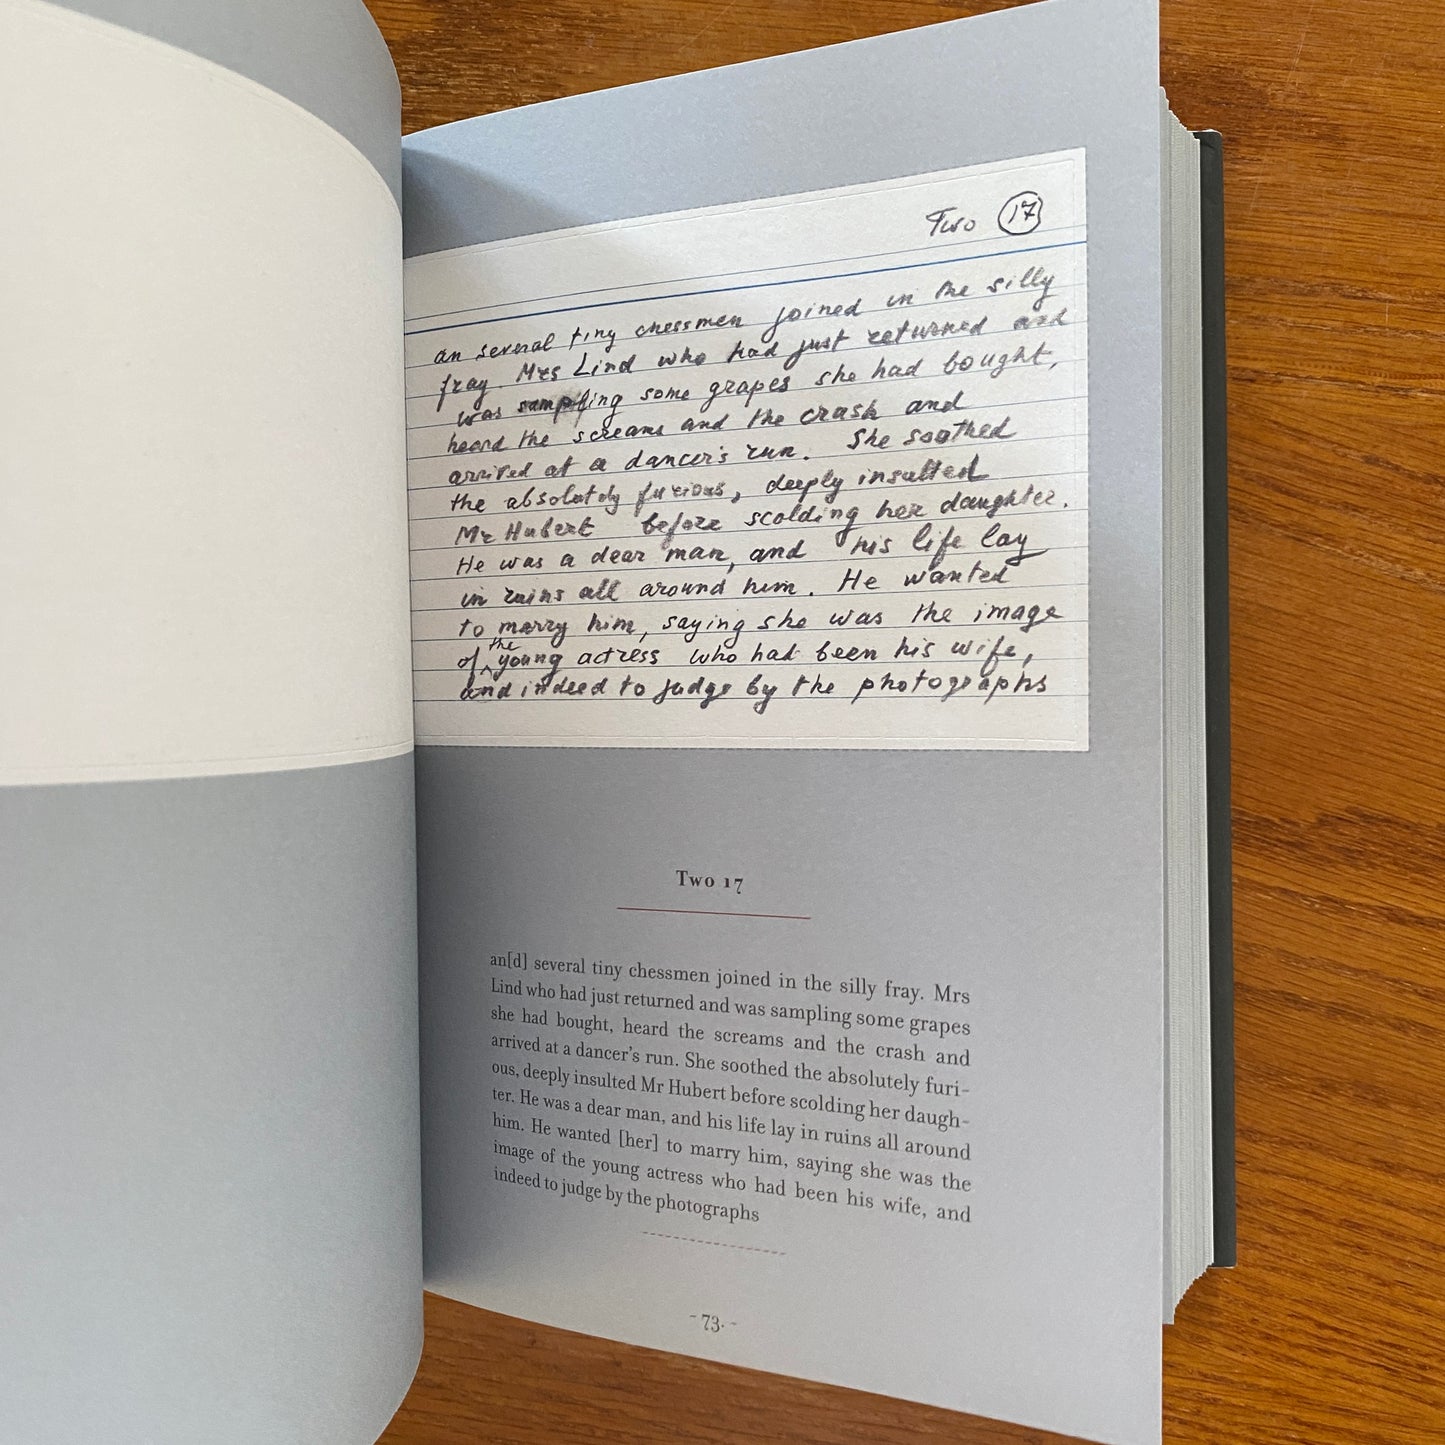 Two 17
an several tiny chessmen joined in the silly
fray. Mrs Lind who had just returned and
was sampling some grapes she had bought,
heard the screams and the crash and
arrived at a dancer's run. She soothed
the absolutely furious, deeply insulted
Mr Hubert before scolding her daughter.
He was a dear man, and his life lay
in ruins all around him. He wanted
to marry him, saying she was the image
of the young actress who had been his wife,
and indeed to judge by the photographs
Two 17
an[d] several tiny chessmen joined in the silly fray. Mrs
Lind who had just returned and was sampling some grapes
she had bought, heard the screams and the crash and
arrived at a dancer's run. She soothed the absolutely furi-
ous, deeply insulted Mr Hubert before scolding her daugh-
ter. He was a dear man, and his life lay in ruins all around
him. He wanted [her] to marry him, saying she was the
image of the young actress who had been his wife, and
indeed to judge by the photographs
- 73. -